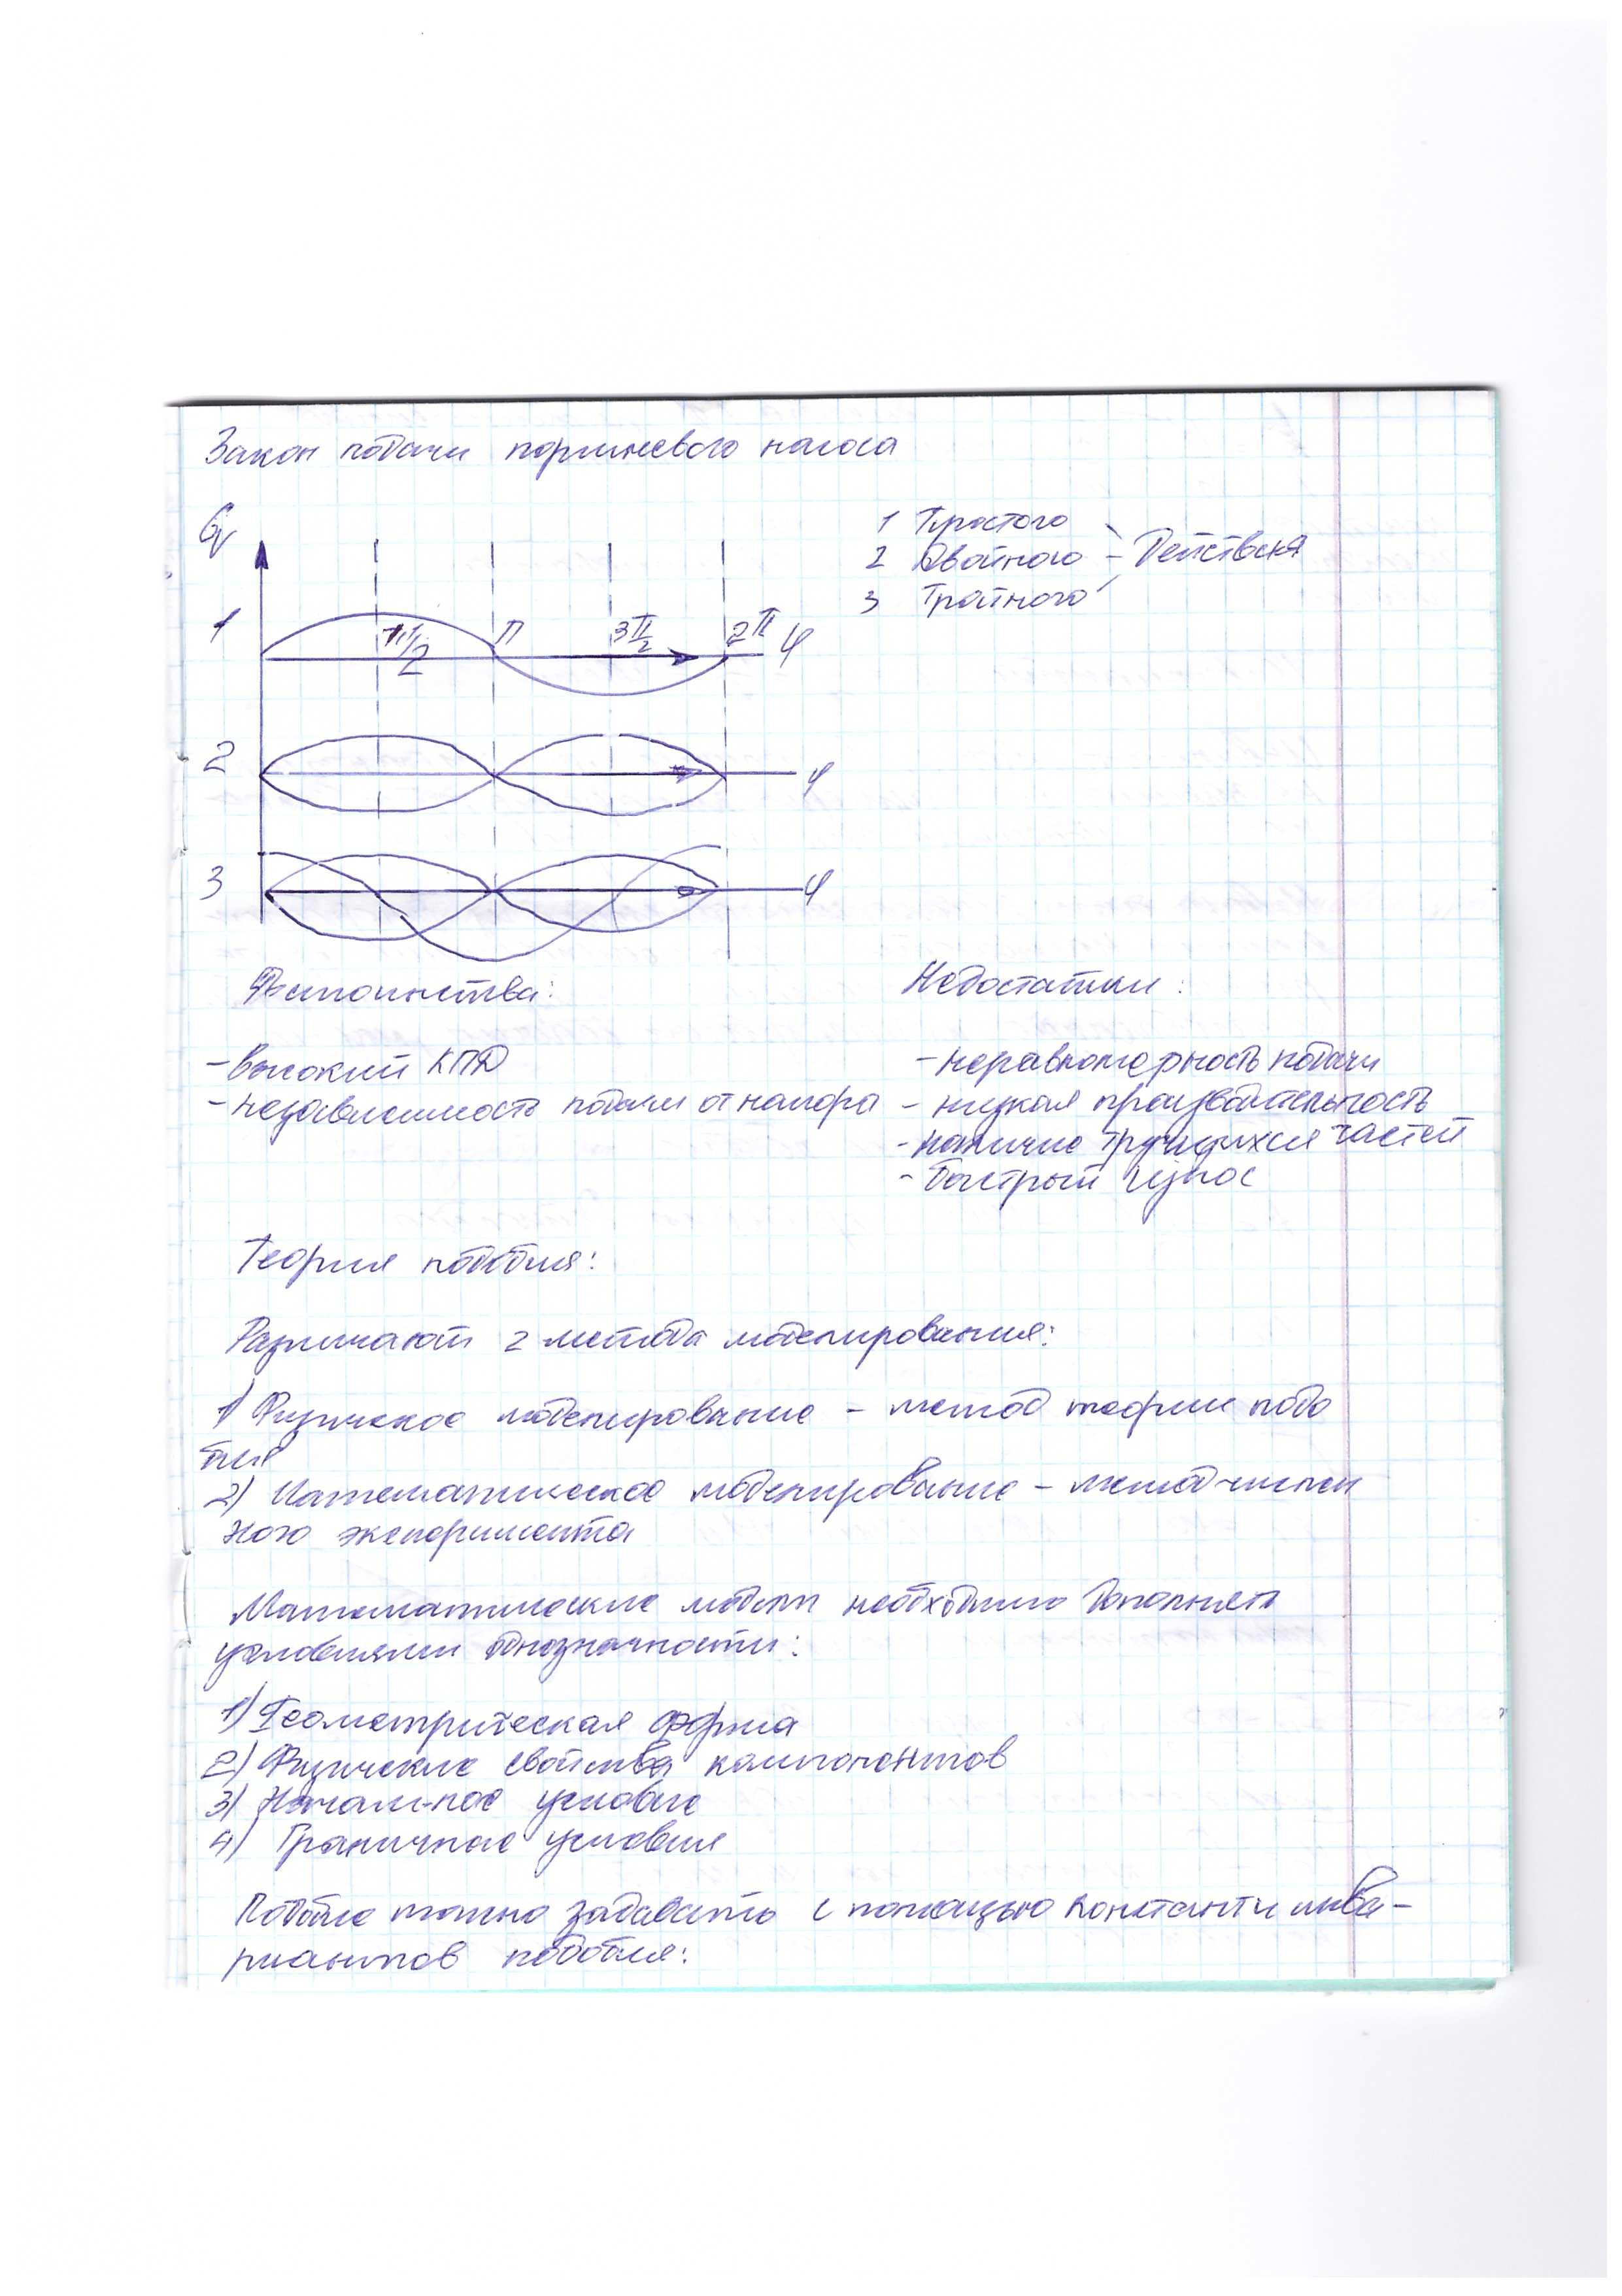 Закон подачи поршневого насоса
Qv
1 Простого
2 Двойного - Действия
3 Тройного
1 π/2 π 3π/2 2π φ
2 φ
3 φ
Достоинства: Недостатки:
- высокий КПД - неравномерность подачи
- независимость подачи от напора - низкая производительность
- наличие трущихся частей
- быстрый износ
Теория подобия:
Различают 2 метода моделирования:
1) Физическое моделирование - метод теории подо
бия
2) Математическое моделирование - метод числен
ного эксперимента
Математические модели необходимо дополнять
условиями однозначности:
1) Геометрическая форма
2) Физические свойства компонентов
3) Начальное условие
4) Граничное условие
Подобие можно задавать с помощью констант и инва-
риантов подобия: